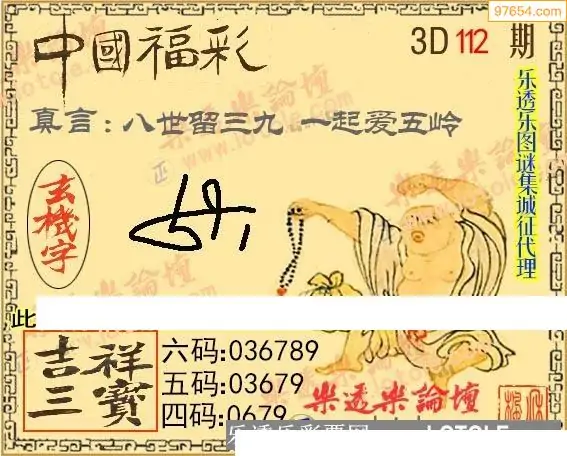 97654.com
中國福彩
3D 112 期
真言：八世留三九 一起爱五岭
乐透乐图谜集诚征代理
玄機字
此
吉祥三寶
六码:036789
五码:03679
四码:0679
樂透樂論壇